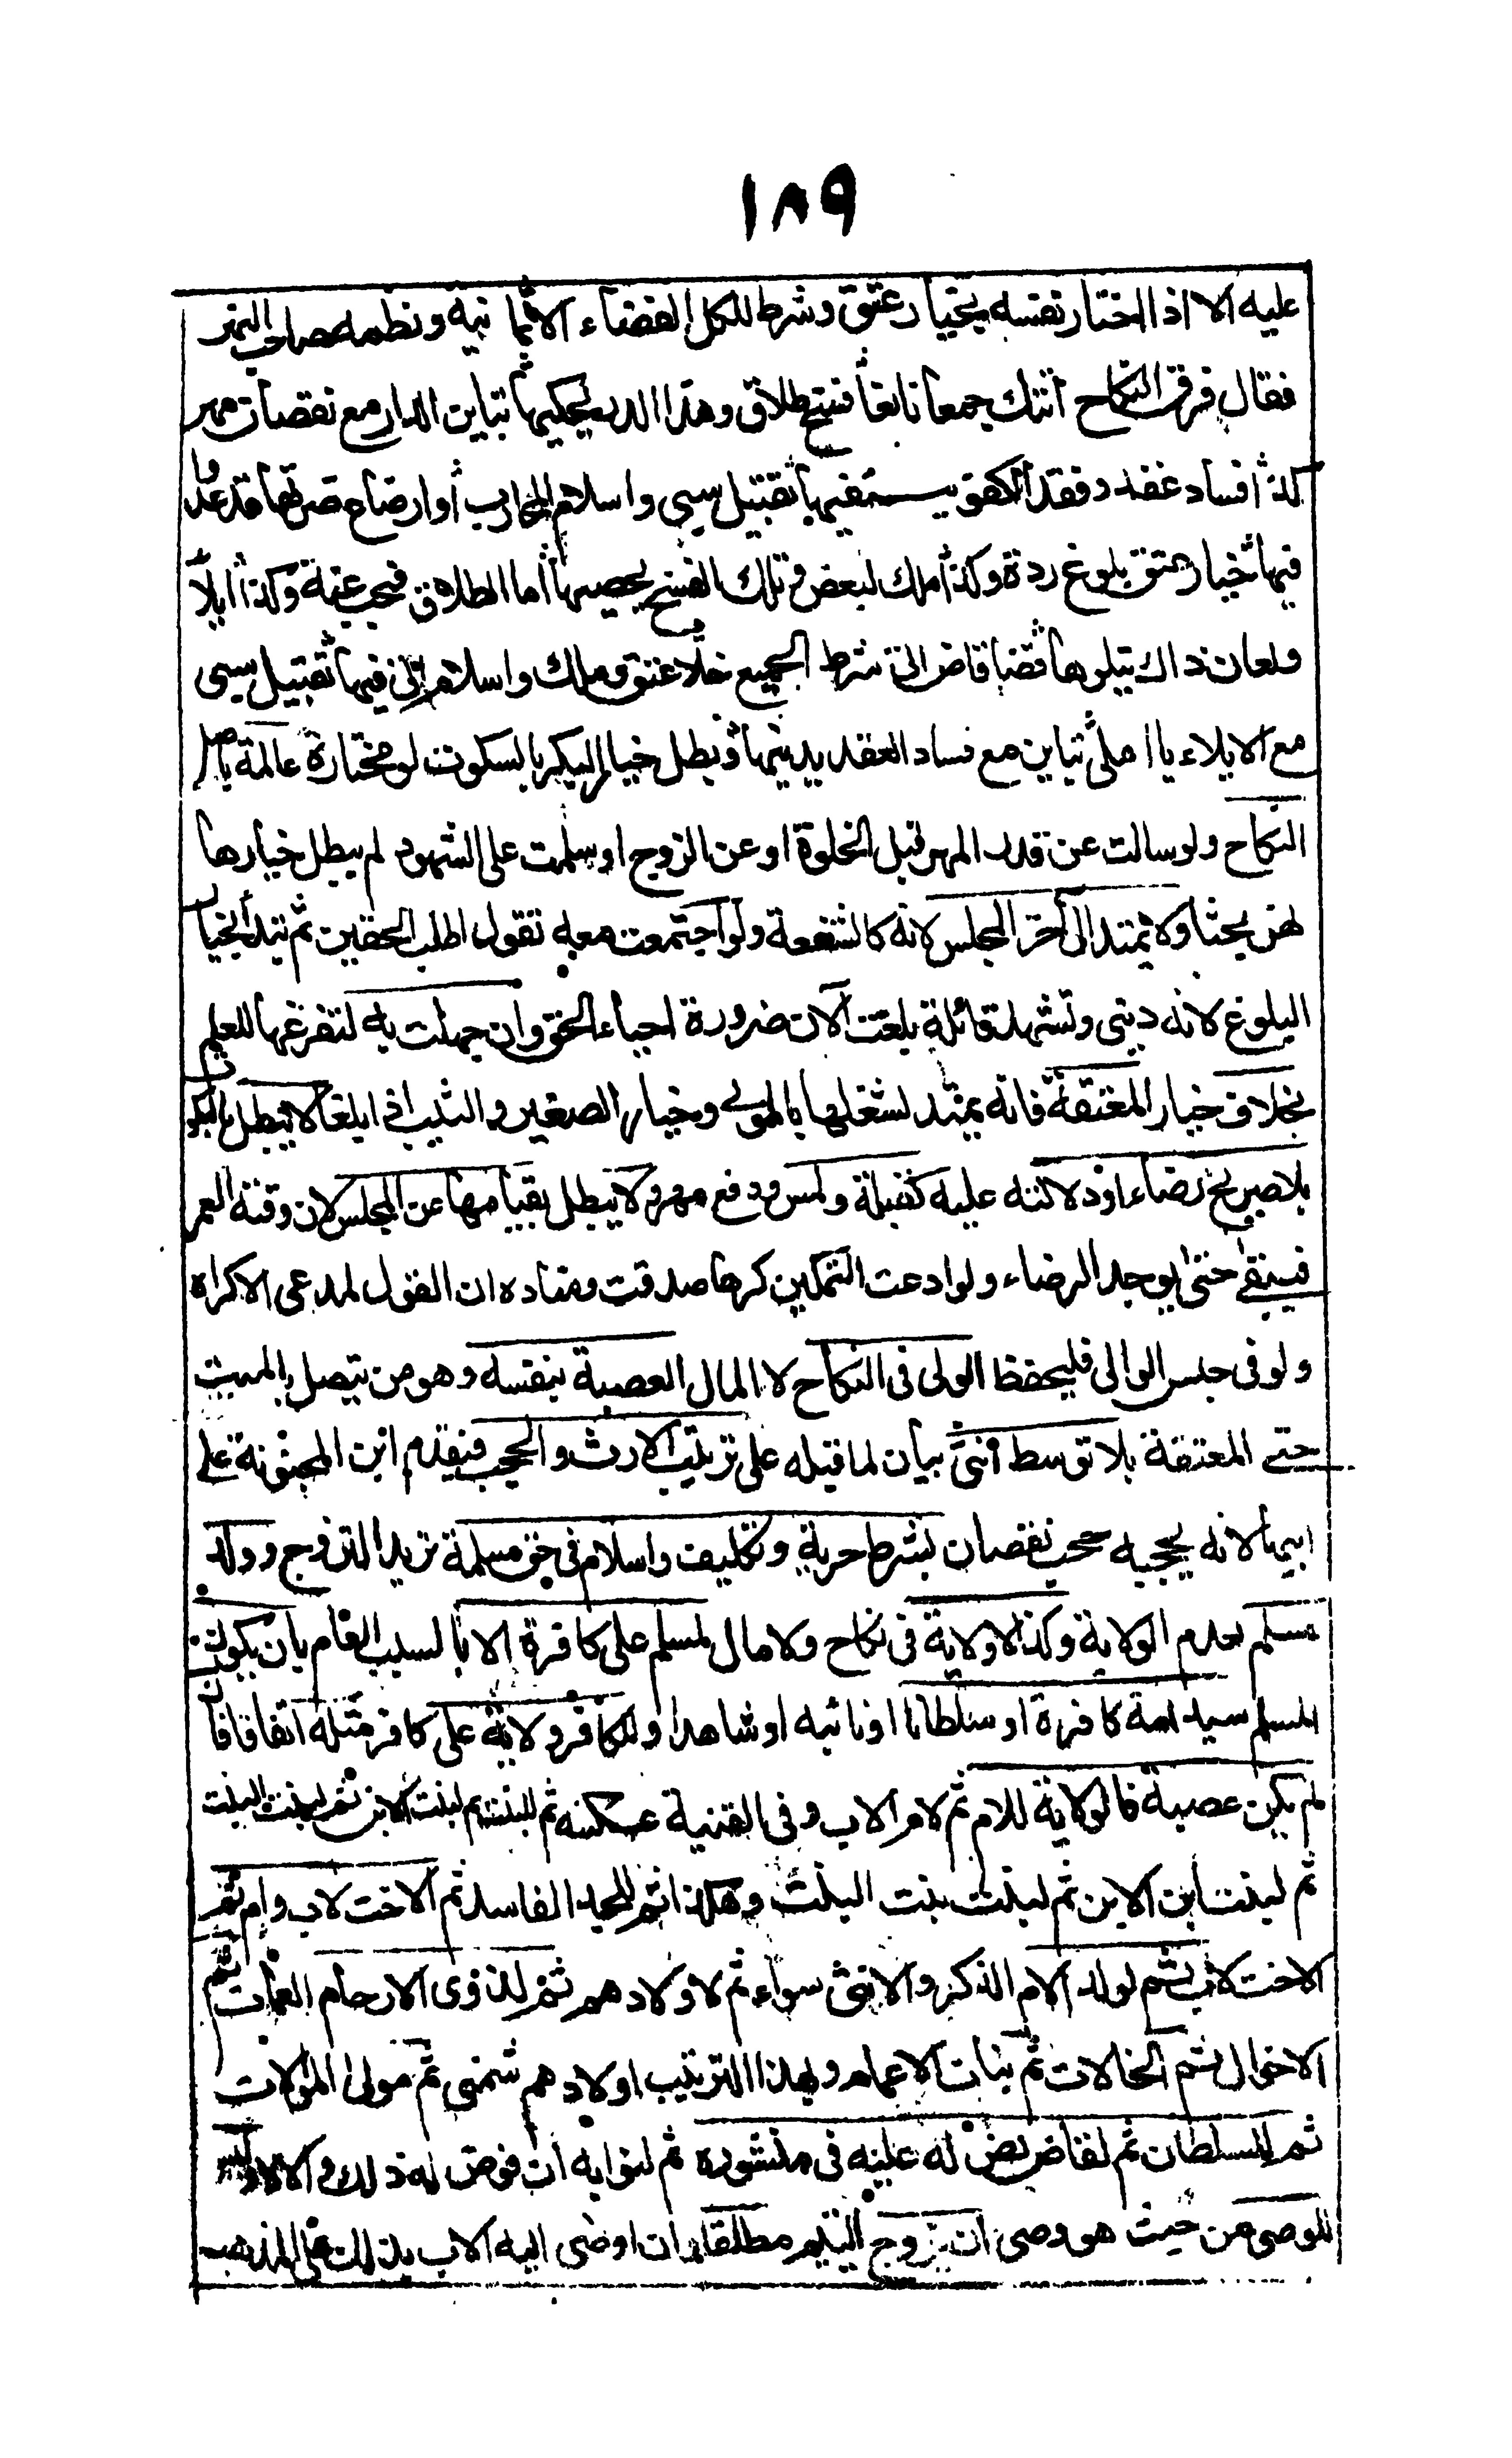 ١٨٩
عليه الا اذا اختار نفسه بخيار عتق وشرط للكل القضاء الا ثمانية ونظمه صاحب النهر
فقال فرق النكاح اتتك جمعا نافعا فسخ طلاق وهذا الدر يحكيها تباين الدار مع نقصان مهر
كذا فساد عقد وفقد الكفو ينعيها تقبيل سبي واسلام المحارب او ارضاع ضرتها قد عد ذا
فيها خيار عتق بلوغ ردة وكذا ملك لبعض وتلك الفسخ يحصيها اما الطلاق فجب عنة وكذا ايلا
ولعان ذاك يتلوها قضا قاض اتى شرط الجميع خلا عتق وملك واسلام اتى فيها تقبيل سبي
مع الايلاء يا املى تباين مع فساد العقد يدنيها وبطل خيار البكر بالسكوت لو مختارة عالمة باصل
النكاح ولو سالت عن قدر المهر قبل الخلوة او عن الزوج او سلمت على الشهود لم يبطل خيارها
نهر بحثا ولا يمتد الى اخر المجلس لانه كالشفعة ولو اجتمعت معه تقول اطلب الحقين ثم تبدا بخيار
البلوغ لانه دينى وتشهد قائلة بلغت الآن ضرورة احياء الحق وان جهلت به لتفرغها للعلم
بخلاف خيار المعتقة فانه يمتد لشغلها بالمولى وخيار الصغير والثيب اذا بلغا لا يبطل بالسكوت
بلا صريح رضاء او دلالته عليه كقبلة ولمس ودفع مهر ولا يبطل بقيامها عن المجلس لان وقته العمر
فيبقى حتى يوجد الرضاء ولو ادعت التمكين كرها صدقت ومفاده ان القول لمدعى الاكراه
ولو فى حبس الوالى فليحفظ الولى فى النكاح لا المال العصبة بنفسه وهو من يتصل بالميت
حتى المعتقة بلا توسط انثى بيان لما قبله على ترتيب الارث والحجب فيقدم ابن المجنونة على
ابيها لانه يحجبه حجب نقصان بشرط حرية وتكليف واسلام فى حق مسلمة تريد التزوج وولد
مسلم لعدم الولاية وكذا لا ولاية فى نكاح ولا مال لمسلم على كافرة الا بالسبب العام بان يكون
المسلم سيد امة كافرة او سلطانا او نائبه او شاهدا وللكافر ولاية على كافر مثله اتفاقا فان
لم يكن عصبة فالولاية للام ثم لام الاب وفى القنية عكسه ثم للبنت ثم لبنت الابن ثم لبنت البنت
ثم لبنت ابن الابن ثم لبنت بنت البنت وهكذا ثم للجد الفاسد ثم الاخت لاب وام ثم
الاخت لاب ثم لولد الام الذكر والانثى سواء ثم لاولادهم ثم لذوى الارحام العمات ثم
الاخوال ثم الخالات ثم بنات الاعمام وبهذا الترتيب اولادهم شمنى ثم مولى الموالات
ثم للسلطان ثم لقاض نص له عليه فى منشوره ثم لنوابه ان فوض له ذلك والا لا وليس
للوصى من حيث هو وصى ان يزوج اليتيم مطلقا وان اوصى اليه الاب بذلك على المذهب